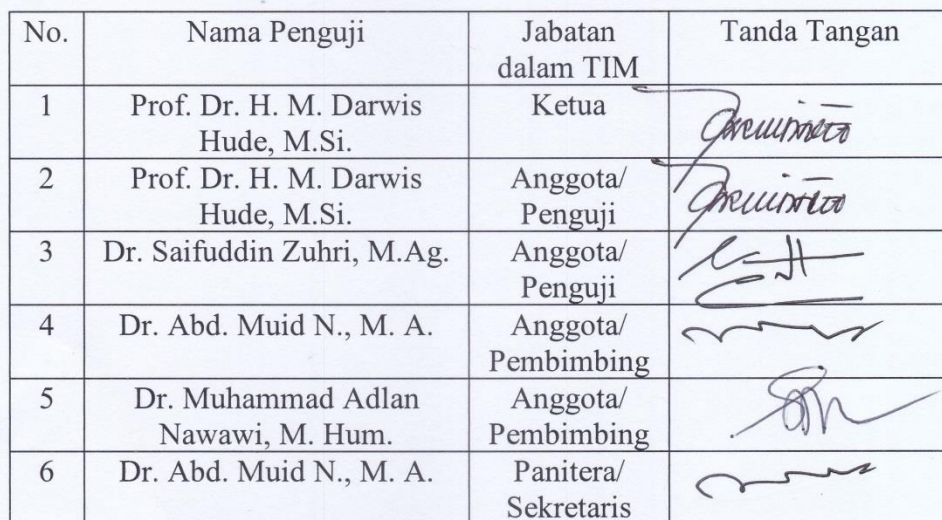 No.
Nama Penguji
Jabatan
dalam TIM
Tanda Tangan
1
Prof. Dr. H. M. Darwis
Hude, M.Si.
Ketua
2
Prof. Dr. H. M. Darwis
Hude, M.Si.
Anggota/
Penguji
3
Dr. Saifuddin Zuhri, M.Ag.
Anggota/
Penguji
4
Dr. Abd. Muid N., M. A.
Anggota/
Pembimbing
5
Dr. Muhammad Adlan
Nawawi, M. Hum.
Anggota/
Pembimbing
6
Dr. Abd. Muid N., M. A.
Panitera/
Sekretaris